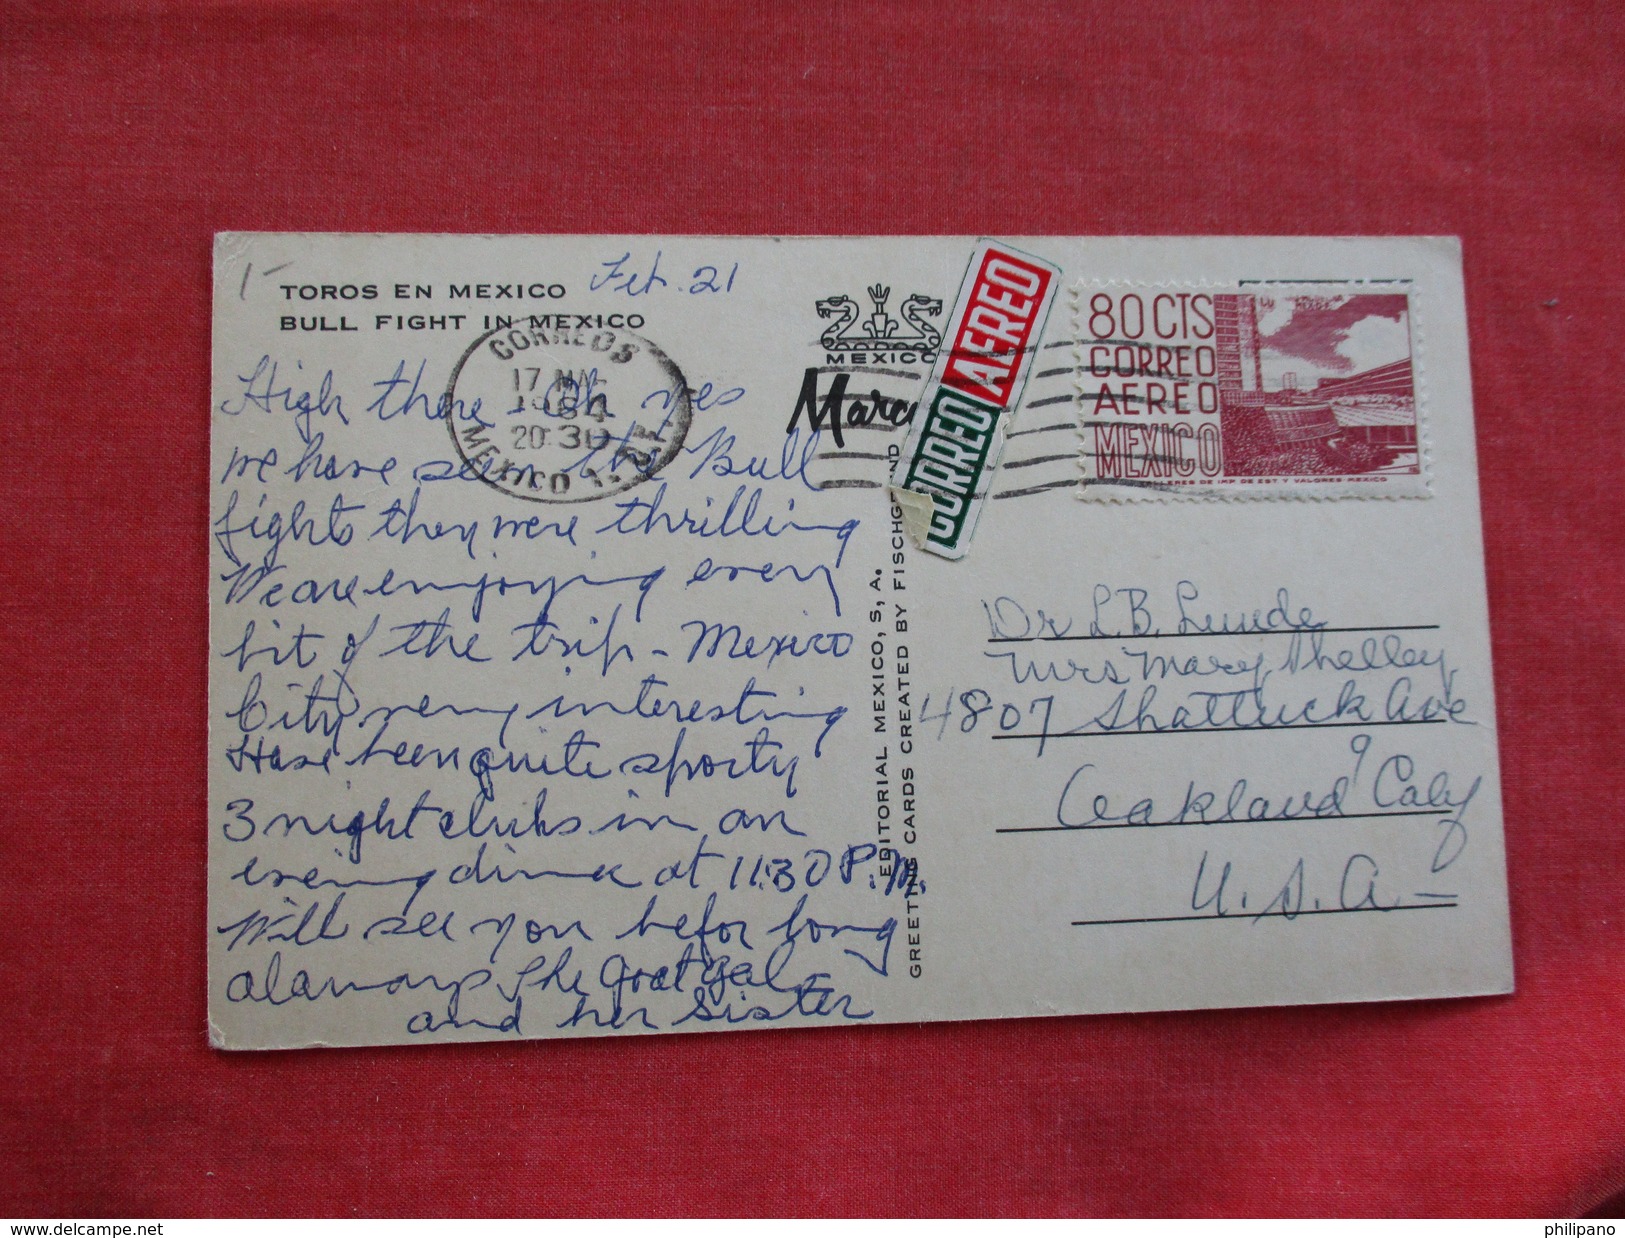 1-
TOROS EN MEXICO
BULL FIGHT IN MEXICO
Feb. 21
High there - Oh yes
we have seen the Bull
fights they were thrilling
We are enjoying every
bit of the trip - Mexico
City very interesting
Have been quite sporty
3 night clubs in an
evening dinner at 11:30 P.M.
Will see you befor long
always The goat gal
and her Sister
CORREOS
17
20 30
MEXICO 1, D.F.
MEXICO
Marc
CORREO AEREO
EDITORIAL MEXICO, S, A.
GREETING CARDS CREATED BY FISCHG ND
80 CTS
CORREO
AEREO
MEXICO
TALLERES DE IMP DE EST Y VALORES-MEXICO
Dr L.B. Lunde
Mrs Mary Shelley
4807 Shattuck Ave
Oakland 9 Calif
U.S.A-
delcampe.net
philipano